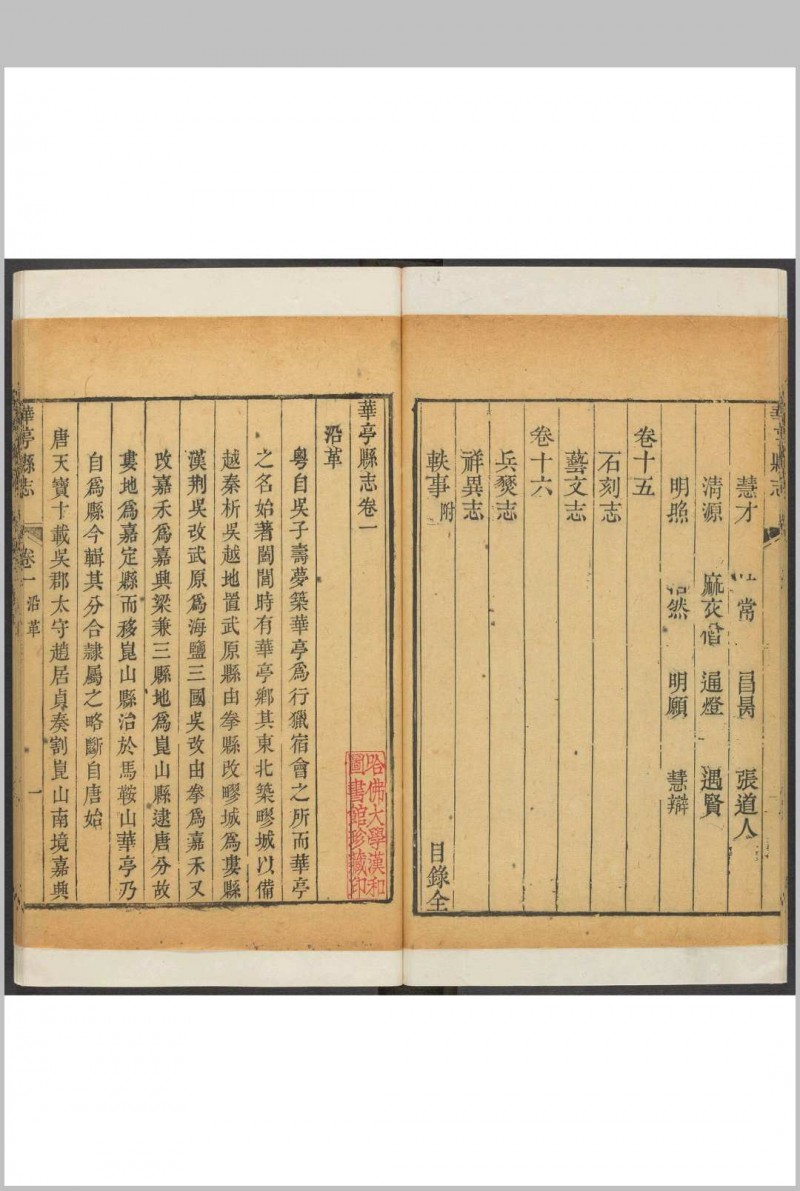 慧才 常 昌 張道人
清源 麻衣 逼燈 遇賢
明照 然 明願 慧辯
卷十五
石刻志
藝文志
卷十六
兵燹志
祥異志
軼事附 目錄全
華亭縣志卷一
沿革
粵自吳子壽夢築華亭爲行獵宿會之所而華亭
之名始著闔閭時有華亭鄉其東北築疁城以備
越秦析吳越地置武原縣由拳縣改疁城爲婁縣
漢荆吳改武原爲海鹽三國吳改由拳爲嘉禾又
改嘉禾爲嘉興梁兼三縣地爲崑山縣逮唐分故
婁地爲嘉定縣而移崑山縣治於馬鞍山華亭乃
自爲縣今輯其分合隷屬之略斷自唐始
唐天寶十載吳郡太守趙居貞奏割崑山南境嘉興
華亭縣志 卷一 沿革 一
哈佛大學漢和
圖書館珍藏印